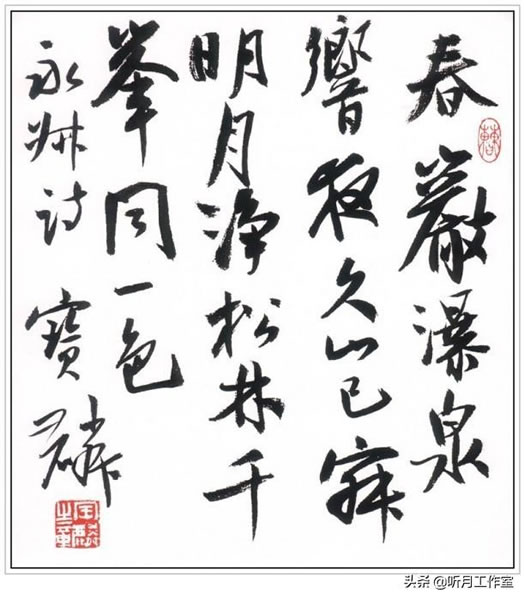 春巖瀑泉
響夜久山已寂
明月淨松林千
峯同一色
永叔诗 寶麟
头条 @听月工作室